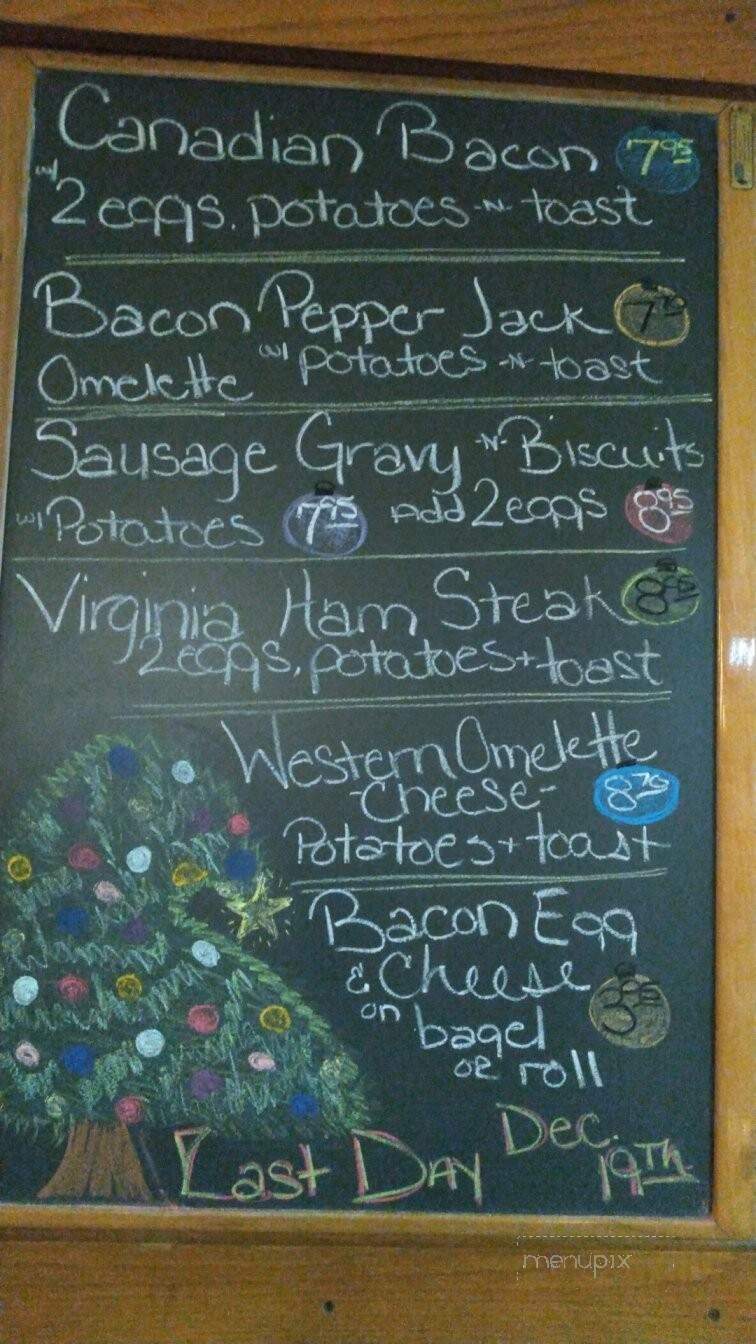 Canadian Bacon 7.95
w/ 2 eggs, potatoes -N- toast
Bacon Pepper Jack 7.70
Omelette w/ potatoes -N- toast
Sausage Gravy -N- Biscuits
w/ Potatoes 7.95 Add 2 eggs 8.95
Virginia Ham Steak
2 eggs, potatoes + toast
Western Omelette
-Cheese- 8.70
Potatoes + toast
Bacon Egg
& Cheese
on bagel
or roll
Last Day Dec. 19TH
menupix